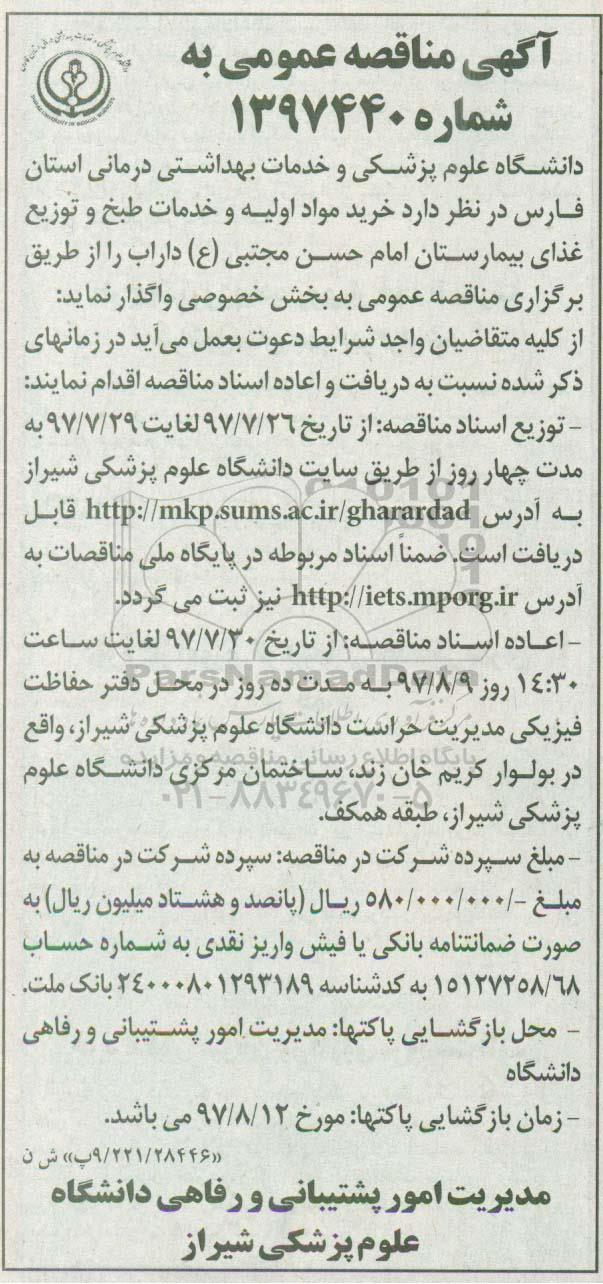 آگهی مناقصه عمومی به
شماره ۱۳۹۷۴۴۰
دانشگاه علوم پزشکی و خدمات بهداشتی درمانی استان
فارس در نظر دارد خرید مواد اولیه و خدمات طبخ و توزیع
غذای بیمارستان امام حسن مجتبی (ع) داراب را از طریق
برگزاری مناقصه عمومی به بخش خصوصی واگذار نماید:
از کلیه متقاضیان واجد شرایط دعوت بعمل می‌آید در زمانهای
ذکر شده نسبت به دریافت و اعاده اسناد مناقصه اقدام نمایند:
- توزیع اسناد مناقصه: از تاریخ ۹۷/۷/۲۶ لغایت ۹۷/۷/۲۹ به
مدت چهار روز از طریق سایت دانشگاه علوم پزشکی شیراز
به آدرس http://mkp.sums.ac.ir/gharardad قابل
دریافت است. ضمناً اسناد مربوطه در پایگاه ملی مناقصات به
آدرس http://iets.mporg.ir نیز ثبت می گردد.
- اعاده اسناد مناقصه: از تاریخ ۹۷/۷/۳۰ لغایت ساعت
ParsNamadData
۱۴:۳۰ روز ۹۷/۸/۹ به مدت ده روز در محل دفتر حفاظت
فیزیکی مدیریت حراست دانشگاه علوم پزشکی شیراز، واقع
پایگاه اطلاع رسانی مناقصه و مزایده
در بولوار کریم خان زند، ساختمان مرکزی دانشگاه علوم
۰۲۱-۸۸۳۴۹۶۷۰-۵
پزشکی شیراز، طبقه همکف.
- مبلغ سپرده شرکت در مناقصه: سپرده شرکت در مناقصه به
مبلغ -/۵۸۰/۰۰۰/۰۰۰ ریال (پانصد و هشتاد میلیون ریال) به
صورت ضمانتنامه بانکی یا فیش واریز نقدی به شماره حساب
۱۵۱۲۷۲۵۸/۶۸ به کدشناسه ۲۴۰۰۰۸۰۱۲۹۳۱۸۹ بانک ملت.
- محل بازگشایی پاکتها: مدیریت امور پشتیبانی و رفاهی
دانشگاه
- زمان بازگشایی پاکتها: مورخ ۹۷/۸/۱۲ می باشد.
«۹/۲۲۱/۲۸۴۴۶پ» ش ن
مدیریت امور پشتیبانی و رفاهی دانشگاه
علوم پزشکی شیراز